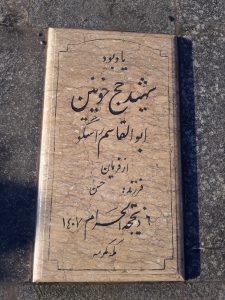 یادبود
شهید حج خونین
ابوالقاسم
از قربان
فرزند حسن
۶ ذیحجه الحرام ۱۴۰۷
مکه مکرمه